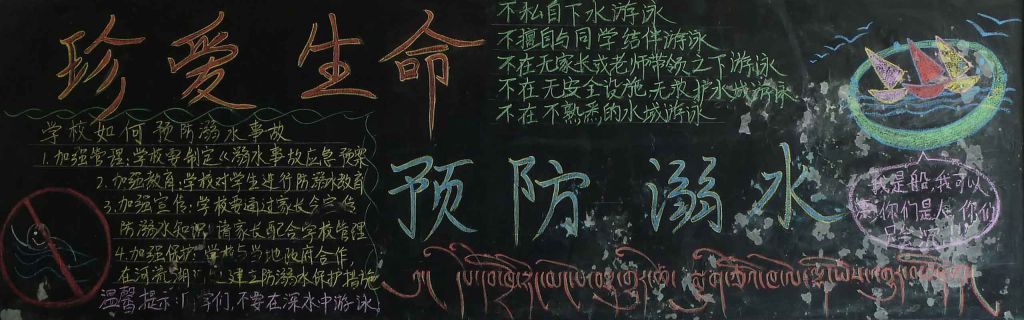 珍爱生命
学校如何预防溺水事故
1.加强管理:学校要制定《溺水事故应急预案
2.加强教育:学校对学生进行防溺水教育
3.加强宣传:学校要通过家长会宣传
防溺水知识,请家长配合学校管理
4.加强保护:学校与当地政府合作
在河流 建立防溺水保护措施
温馨提示: 学们,不要在深水中游泳
不私自下水游泳
不擅自与同学结伴游泳
不在无家长或老师带领之下游泳
不在无安全设施,无救护水域游泳
不在不熟悉的水域游泳
预防溺水
我是船,我可以
你们是人,你们
只会沉